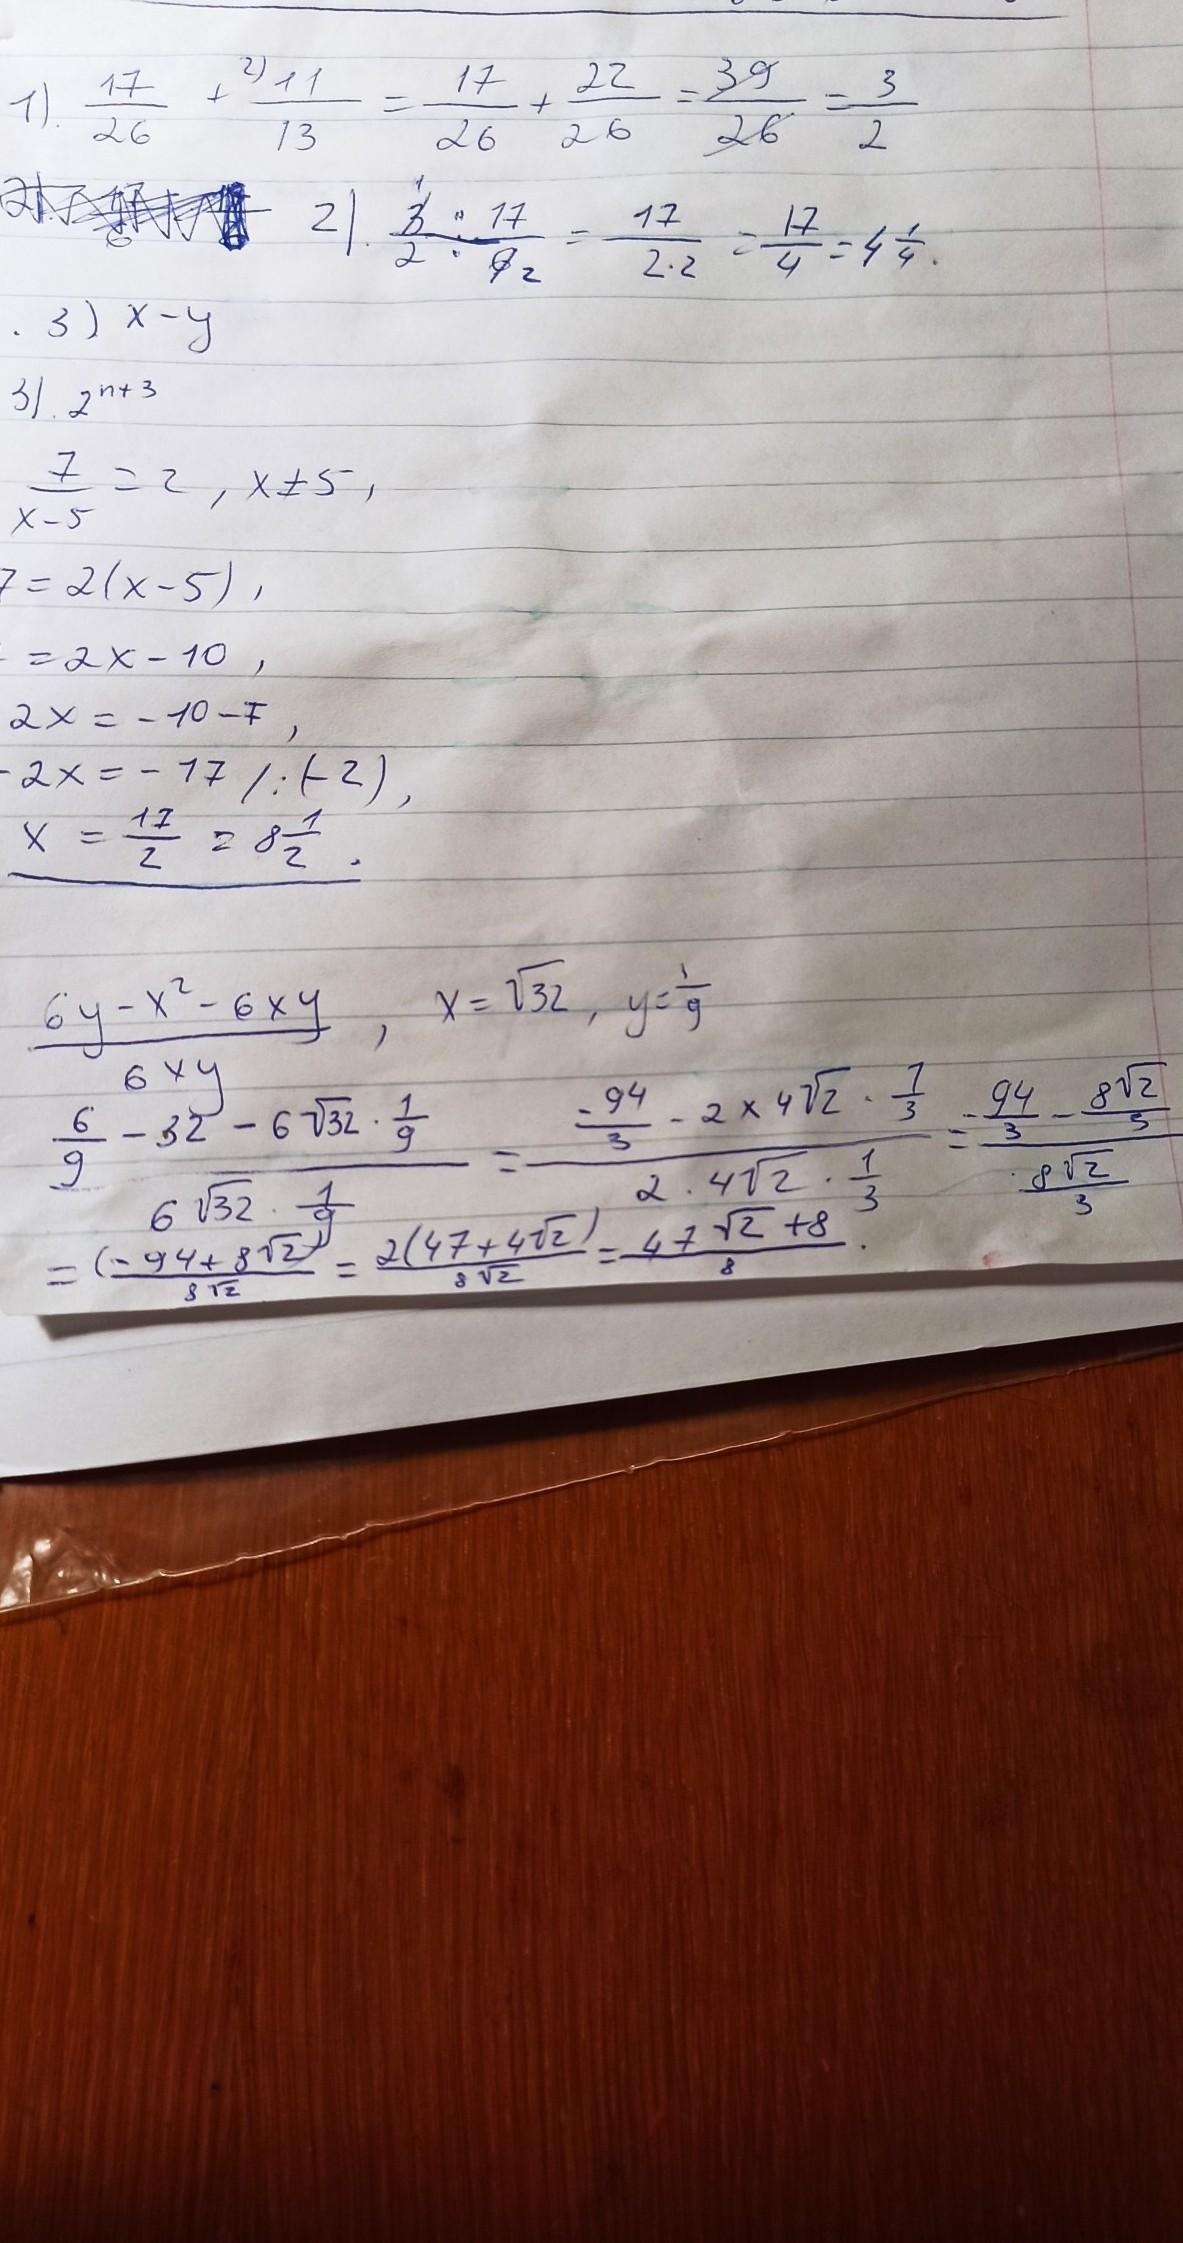 1). 17/26 + 2) 11/13 = 17/26 + 22/26 = 39/26 = 3/2
2). 3/2 : 17/6 2 = 17/2·2 = 17/4 = 4 1/4.
. 3) x-y
3). 2^(n+3)
7/(x-5) = 2, x≠5,
7=2(x-5),
=2x-10,
2x=-10-7,
-2x=-17 /:(-2),
x = 17/2 = 8 1/2.
(6y-x²-6xy)/(6xy), x=√32, y=1/9
(6/9 - 32 - 6√32 · 1/9)/(6√32 · 1/9) = (-94/3 - 2×4√2 · 1/3)/(2·4√2 · 1/3) = (-94/3 - 8√2/3)/(8√2/3)
= (-94+8√2)/(8√2) = 2(47+4√2)/(8√2) = (47√2+8)/8.